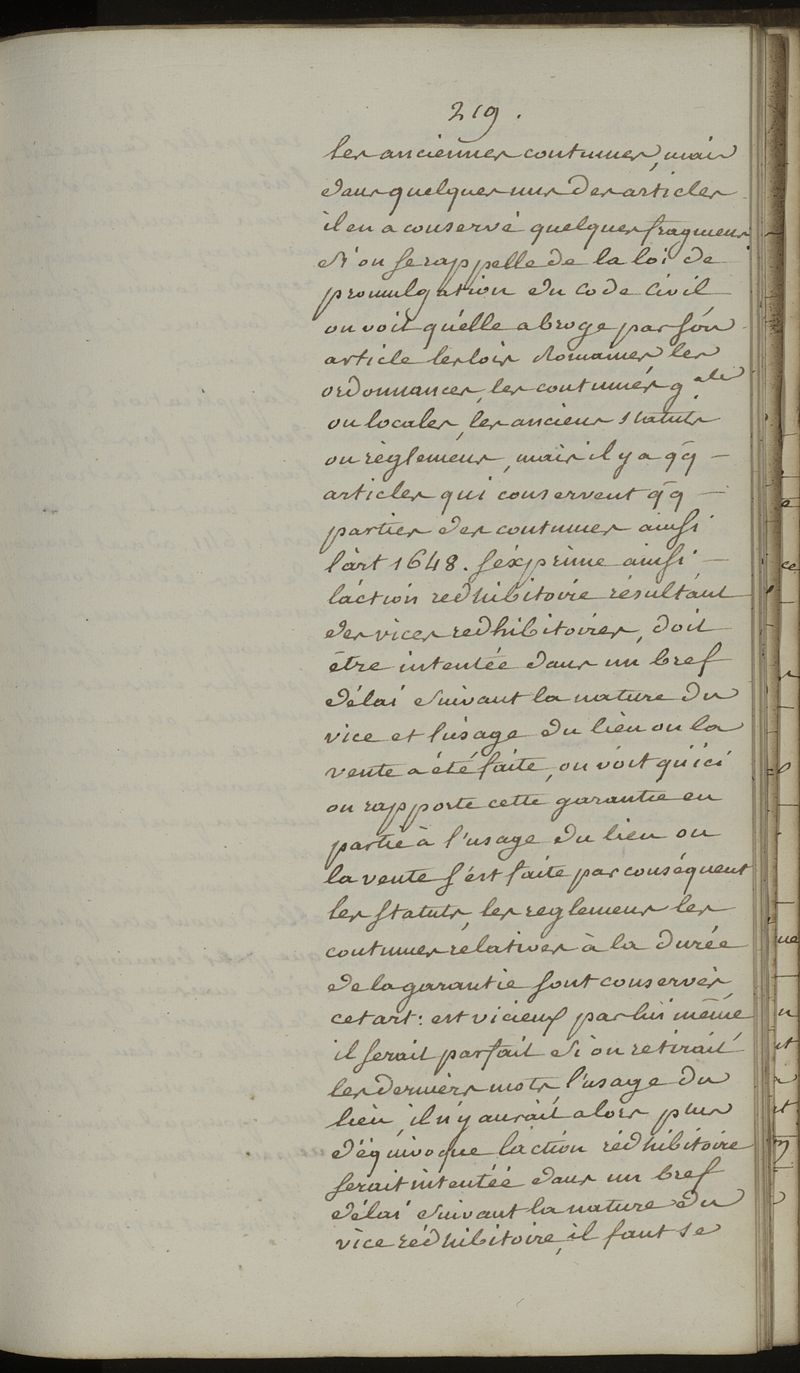 219.
les anciennes coutumes, mais
dans quelques uns des articles
il en a conservé quelques fragmens
si on se rappelle de la loi de
promulgation du Code Civil
on voit qu'elle abroge par son
article les lois Romaines les
ordonnances, les coutumes g.ales
ou locales, les anciens statuts
ou règlemens, mais il y a qq
articles qui conservent qq
parties des coutumes ainsi
l'art 1648. s'exprime ainsi
l'action redhibitoire résultant
des vices redhibitoires, doit
être intentée dans un bref
délai suivant la nature du
vice et l'usage du lieu ou la
vente a été faite, on voit qu'ici
on rapporte cette garantie en
partie à l'usage du lieu ou
la vente s'est faite par conséquent
les statuts, les reglemens les
coutumes rélatives à la durée
de la garantie sont conservés
cet art: est vicieux par lui même
il serait parfait si on retirait
les derniers mots, l'usage du
lieu, il n'y aurait alors plus
d'équivoque l'action rédhibitoire
serait intentée dans un bref
délai suivant la nature du
vice rédhibitoire, il faut se